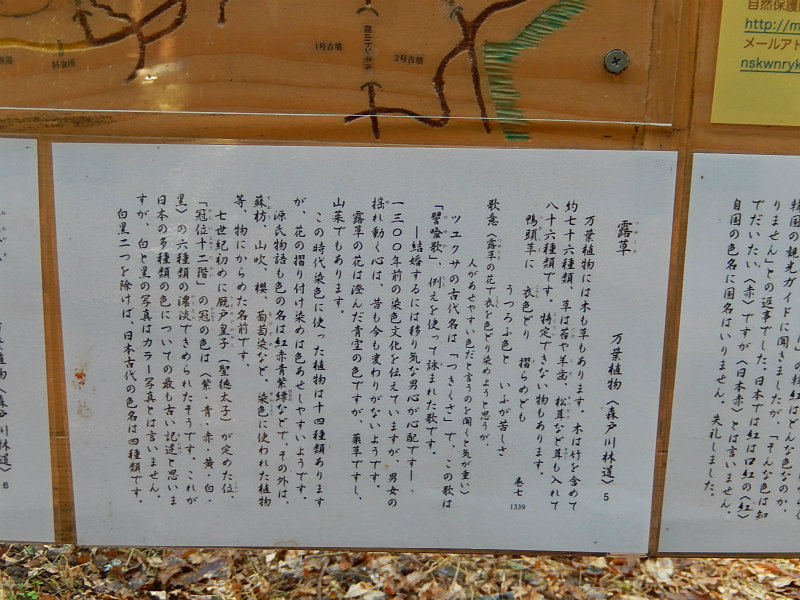 自然保護
http://m
メールアド
nskwnryk
料金所
1号古墳
トンネル
2号古墳
韓国の観光ガイドに聞きましたが、「そんな色は知
りません」との返事でした。日本では紅は口紅の〈紅〉
でだいたい〈赤〉ですが〈日本赤〉とは言いません。
自国の色名に国名はいりません。失礼しました。
露草
つゆくさ
万葉植物〈森戸川林道〉5
万葉植物には木も草もあります。木は竹を含めて
約七十六種類、草は苔や羊歯、松茸など茸も入れて
八十六種類です。特定できない物もあります。
鴨頭草に 衣色どり 摺らめども
うつろふ色と いふが苦しさ
巻七
1339
歌意〈露草の花で衣を色どり染めようと思うが、
人があせやすい色だと言うのを聞くと気が重い〉
ツユクサの古代名は「つきくさ」で、この歌は
「譬喩歌」、例えを使って詠まれた歌です。
―結婚するには移り気な男心が心配です―
一三〇〇年前の染色文化を伝えていますが、男女の
揺れ動く心は、昔も今も変わりがないようです。
露草の花は澄んだ青空の色ですが、薬草ですし、
山菜でもあります。
この時代染色に使った植物は十四種類あります
が、花の摺り付け染めは色あせしやすいようです。
源氏物語も色の名は紅赤青紫縹などで、その外は、
蘇枋、山吹、櫻、葡萄染など。染色に使われた植物
等、物にからめた名前です。
七世紀初めに厩戸皇子（聖徳太子）が定めた位、
「冠位十二階」の冠の色は〈紫・青・赤・黄・白・
黒〉の六種類の濃淡できめられたそうです。これが
日本の多種類の色についての最も古い記述と思いま
すが、白と黒の写真はカラー写真とは言いません。
白黒二つを除けば、日本古代の色名は四種類です。
万葉植物〈森戸川林道〉6